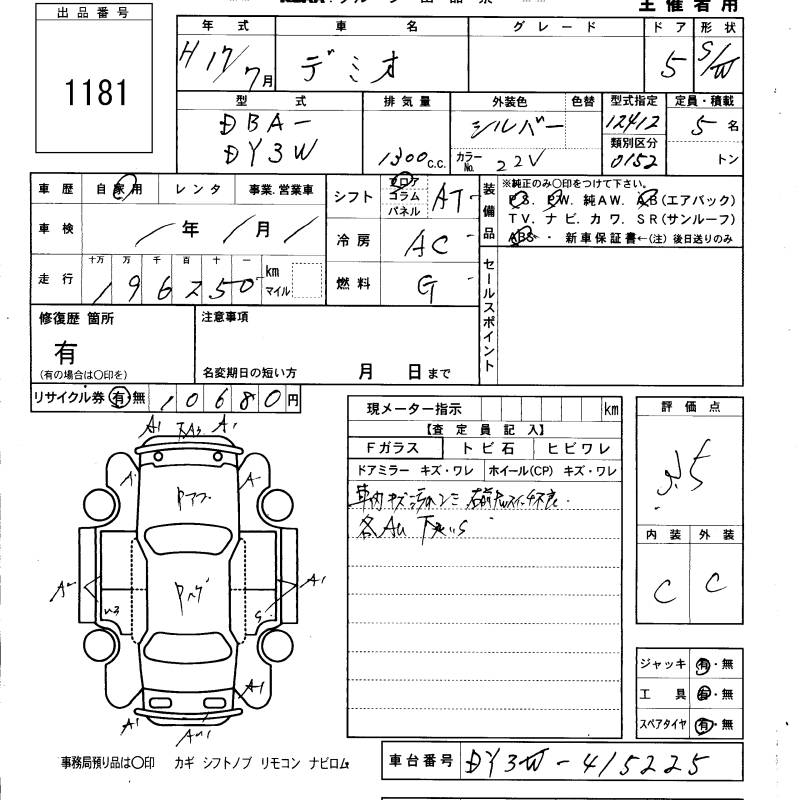 主催者用
出品番号
1181
年式 車名 グレード ドア 形状
H17/7月 デミオ 5 S/W
型式 排気量 外装色 色替 型式指定 定員・積載
DBA-
DY3W
1300 C.C.
シルバー
カラーNo. 22V
12412
類別区分
0152
5名
トン
車歴 自家用 レンタ 事業.営業車
シフト フロア コラム パネル AT
車検 / 年 / 月 /
冷房 AC
走行 十万 万 千 百 十 一
196250 km マイル
燃料 G
装備品
※純正のみ〇印をつけて下さい。
P.S. P.W. 純A.W. A.B(エアバック)
T.V. ナビ. カワ. S.R(サンルーフ)
ABS・ 新車保証書←(注) 後日送りのみ
セールスポイント
修復歴 箇所
有
(有の場合は〇印を)
注意事項
名変期日の短い方 月 日まで
リサイクル券 有・無 10680円
現メーター指示 km
【査定員記入】
Fガラス トビ石 ヒビワレ
ドアミラー キズ・ワレ ホイール(CP) キズ・ワレ
車内キズ
各AU 下廻りS
評価点
3.5
内装 外装
C C
A1 A1
A
A
A2 A1
W3 S
A1
A1
ジャッキ 有・無
工具 有・無
スペアタイヤ 有・無
事務局預り品は〇印 カギ シフトノブ リモコン ナビロム
車台番号 DY3W-415225